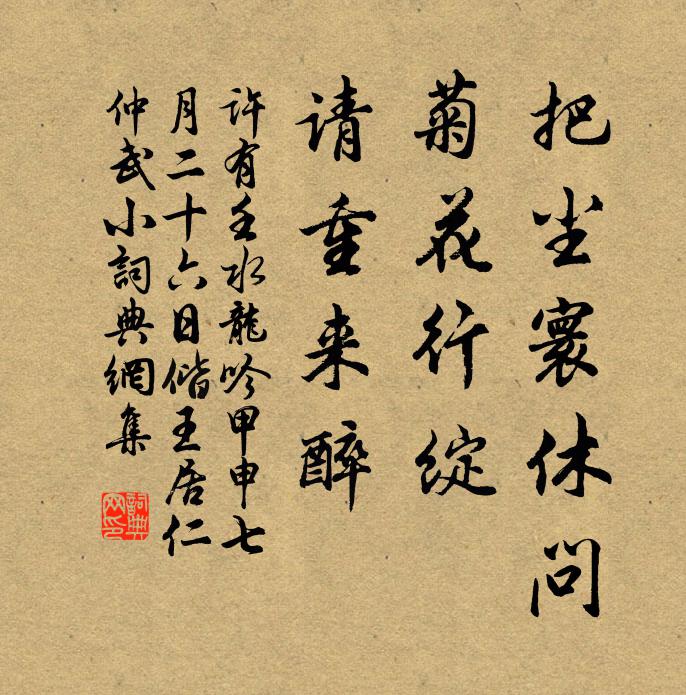 把尘寰休问
菊花行绽
请重来醉
许有壬水龍吟甲申七
月二十六日偕王居仁
仲武小詞典網集
詞典网印